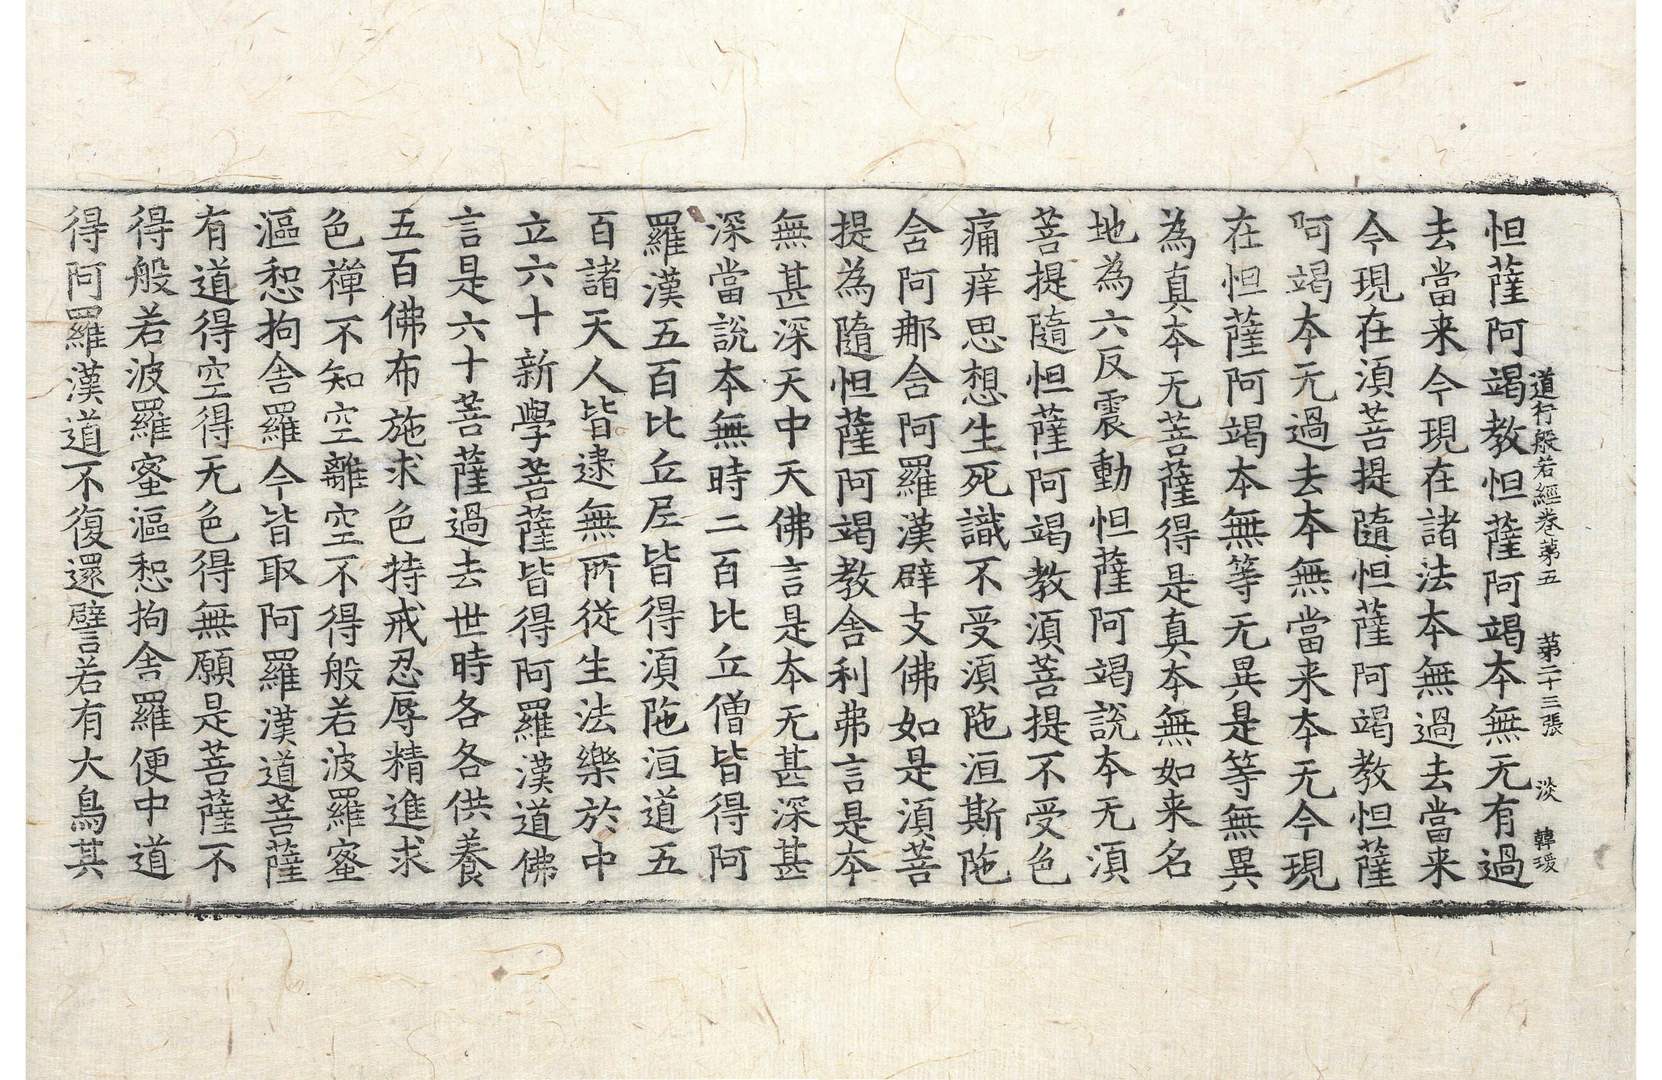 道行般若經卷第五 第二十三張 淡 韓瑗
怛薩阿竭教怛薩阿竭本無无有過
去當来今現在諸法本無過去當来
今現在湏菩提隨怛薩阿竭教怛薩
阿竭本无過去本無當来本无今現
在怛薩阿竭本無等无異是等無異
為真本无菩薩得是真本無如来名
地為六反震動怛薩阿竭說本无湏
菩提隨怛薩阿竭教湏菩提不受色
痛痒思想生死識不受湏陁洹斯陁
含阿那含阿羅漢辟支佛如是湏菩
提為隨怛薩阿竭教舍利弗言是本
無甚深天中天佛言是本无甚深甚
深當說本無時二百比丘僧皆得阿
羅漢五百比丘尼皆得湏陁洹道五
百諸天人皆逮無所從生法樂於中
立六十新學菩薩皆得阿羅漢道佛
言是六十菩薩過去世時各各供養
五百佛布施求色持戒忍辱精進求
色禪不知空離空不得般若波羅蜜
漚惒拘舍羅今皆取阿羅漢道菩薩
有道得空得无色得無願是菩薩不
得般若波羅蜜漚惒拘舍羅便中道
得阿羅漢道不復還譬若有大鳥其